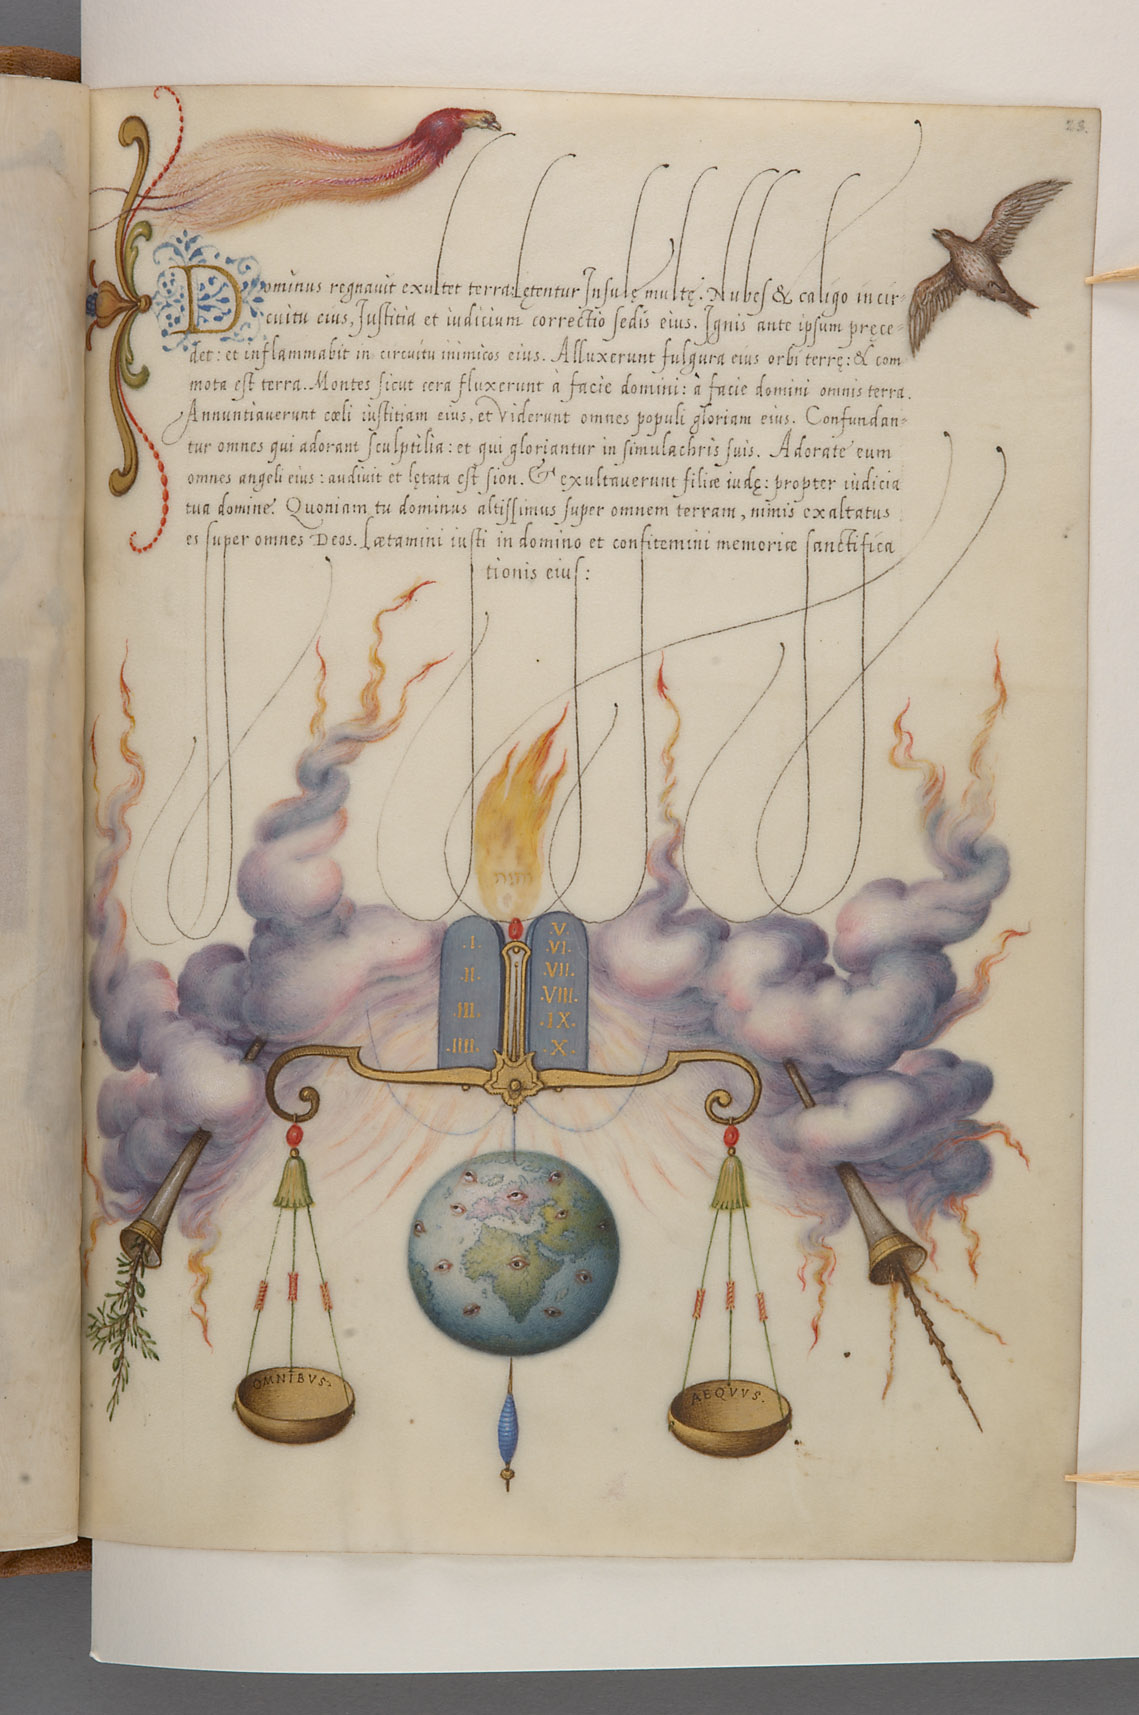 25.
Dominus regnauit exultet terra: lętentur Insulę multę. Nubes & caligo in cir-
cuitu eius, Justitia et iudicium correctio sedis eius. Ignis ante ipsum pręce-
det: et inflammabit in circuitu inimicos eius. Alluxerunt fulgura eius orbi terrę: & com
mota est terra. Montes sicut cera fluxerunt à facie domini: à facie domini omnis terra.
Annuntiauerunt cœli iustitiam eius, et Viderunt omnes populi gloriam eius. Confundan-
tur omnes qui adorant sculptilia: et qui gloriantur in simulachris suis. Adorate eum
omnes angeli eius: audiuit et lętata est sion. & exultauerunt filiæ iudę: propter iudicia
tua domine. Quoniam tu dominus altissimus super omnem terram, nimis exaltatus
es super omnes Deos. Lætamini iusti in domino et confitemini memoriæ sanctifica
tionis eius:
יהוה
.I.
.II.
.III.
.IIII.
.V.
.VI.
.VII.
.VIII.
.IX.
.X.
OMNIBVS.
AEQVVS.